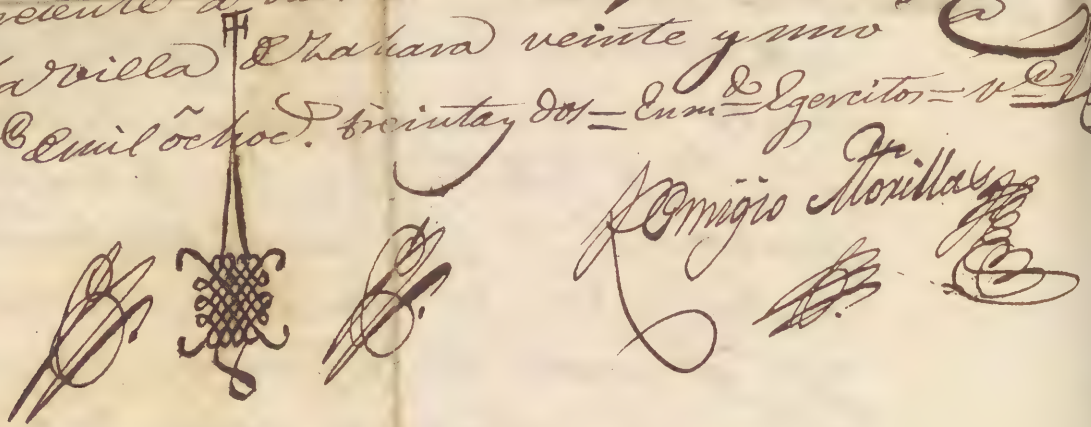 la villa de Zahara veinte y uno
de mil ochoc. treinta y dos = Enm.do Egercitos = v.e
Remigio Morillas